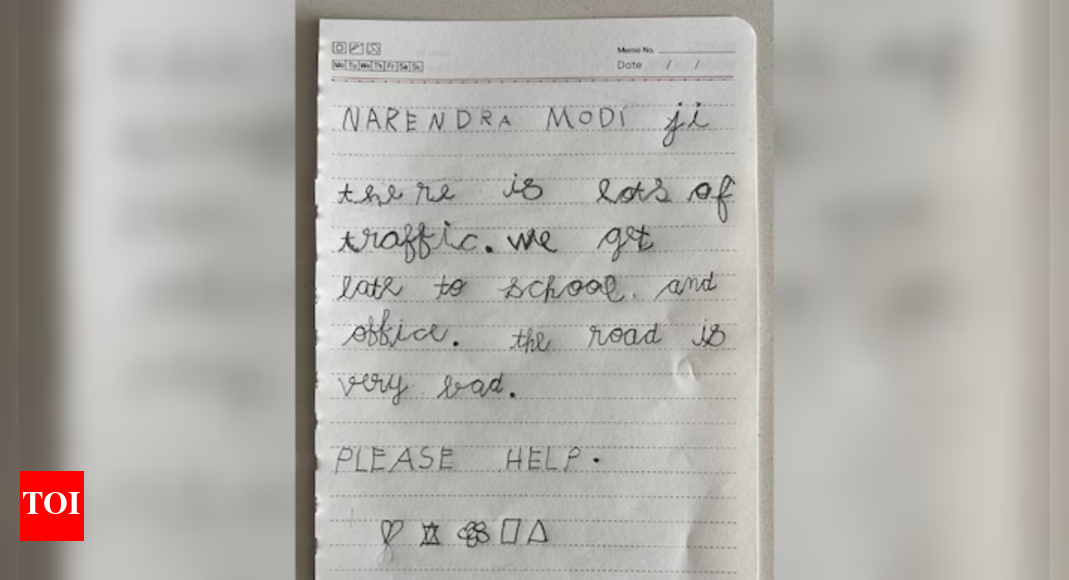 Memo No.
Mo Tu We Th Fr Sa Su
Date / /
NARENDRA MODI ji
there is lots of
traffic. we get
late to school. and
office. the road is
very bad.
PLEASE HELP.
TOI